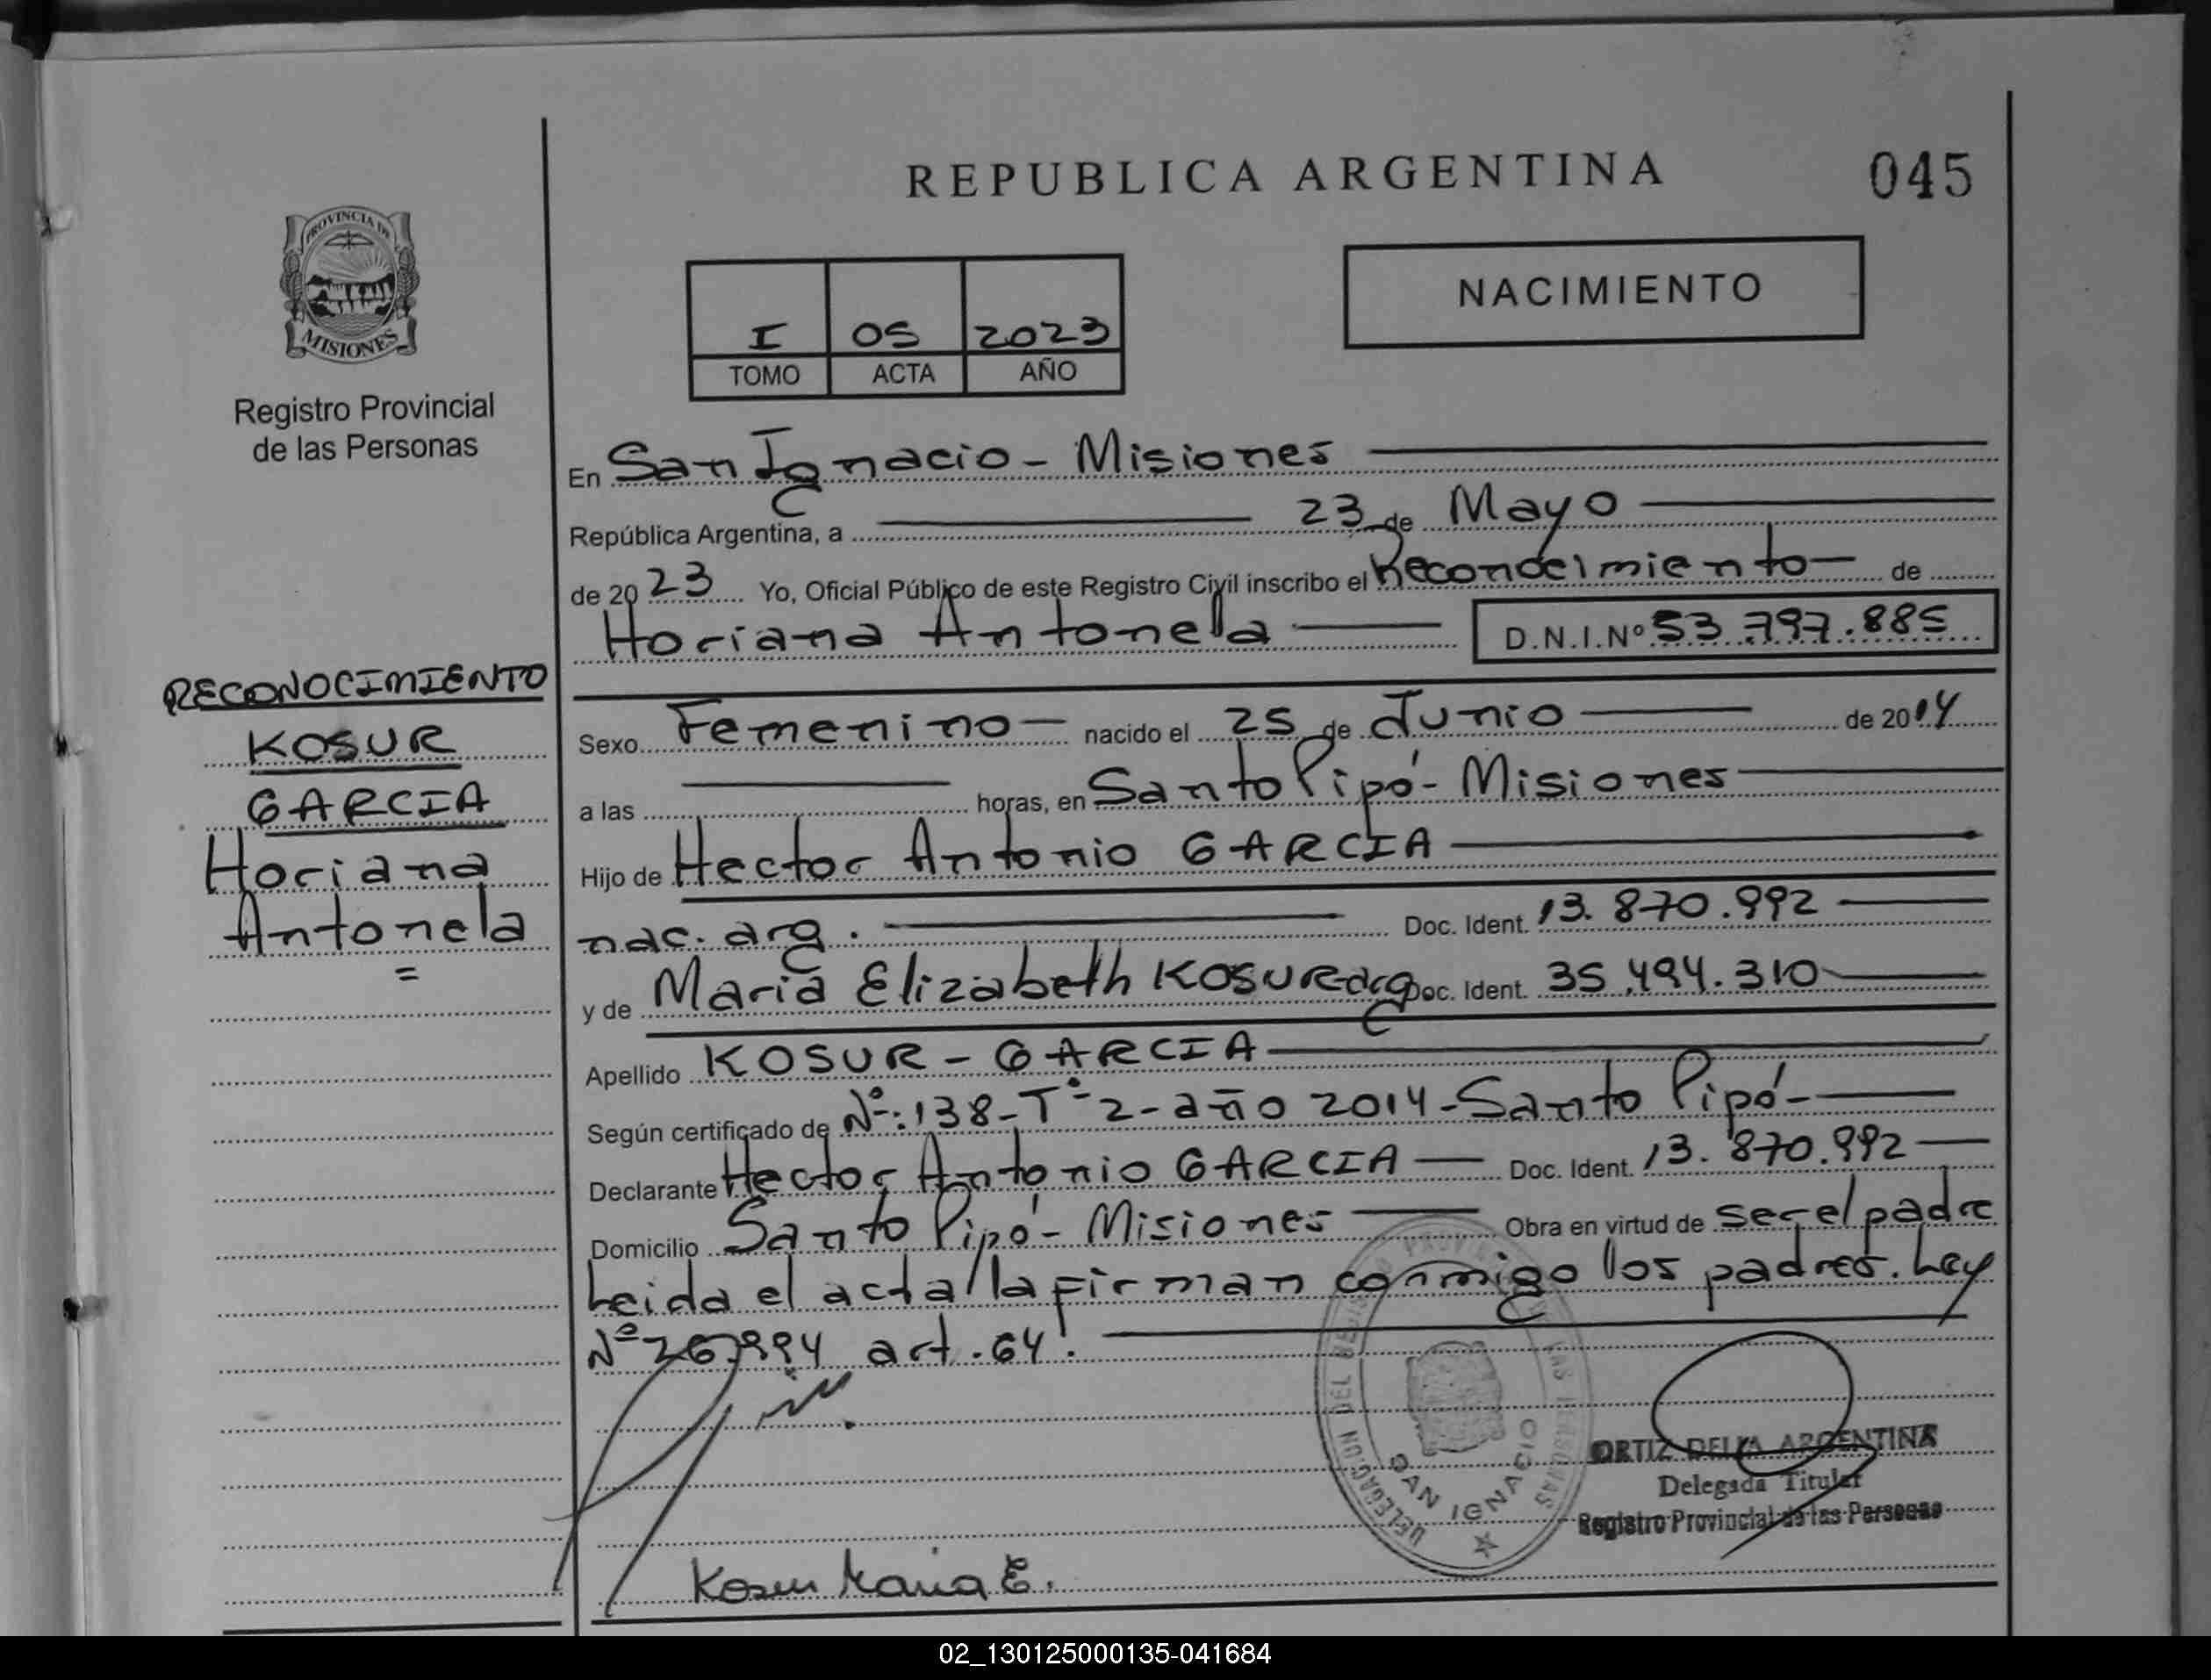 REPUBLICA ARGENTINA
045
PROVINCIA DE
MISIONES
Registro Provincial
de las Personas
I 05 2023
TOMO ACTA AÑO
NACIMIENTO
En San Ignacio - Misiones
República Argentina, a 23 de Mayo
de 20 23 Yo, Oficial Público de este Registro Civil inscribo el Reconocimiento de
Horiana Antonela D.N.I.Nº 53.797.885
RECONOCIMIENTO
KOSUR
GARCIA
Horiana
Antonela
=
Sexo Femenino nacido el 25 de Junio de 20 14
a las horas, en Santo Pipó - Misiones
Hijo de Hector Antonio GARCIA
nac. arg. Doc. Ident. 13.870.992
y de Maria Elizabeth KOSUR arg Doc. Ident. 35.494.310
Apellido KOSUR - GARCIA
Según certificado de Nº: 138 - Tº 2 - año 2014 - Santo Pipó -
Declarante Hector Antonio GARCIA Doc. Ident. 13.870.992
Domicilio Santo Pipó - Misiones Obra en virtud de ser el padre
Leida el acta la firman conmigo los padres. Ley
Nº 26.994 art. 64.
SAN IGNACIO
ORTIZ DELIA ARGENTINA
Delegada Titular
Registro Provincial de las Personas
Kosur Maria E.
02_130125000135-041684